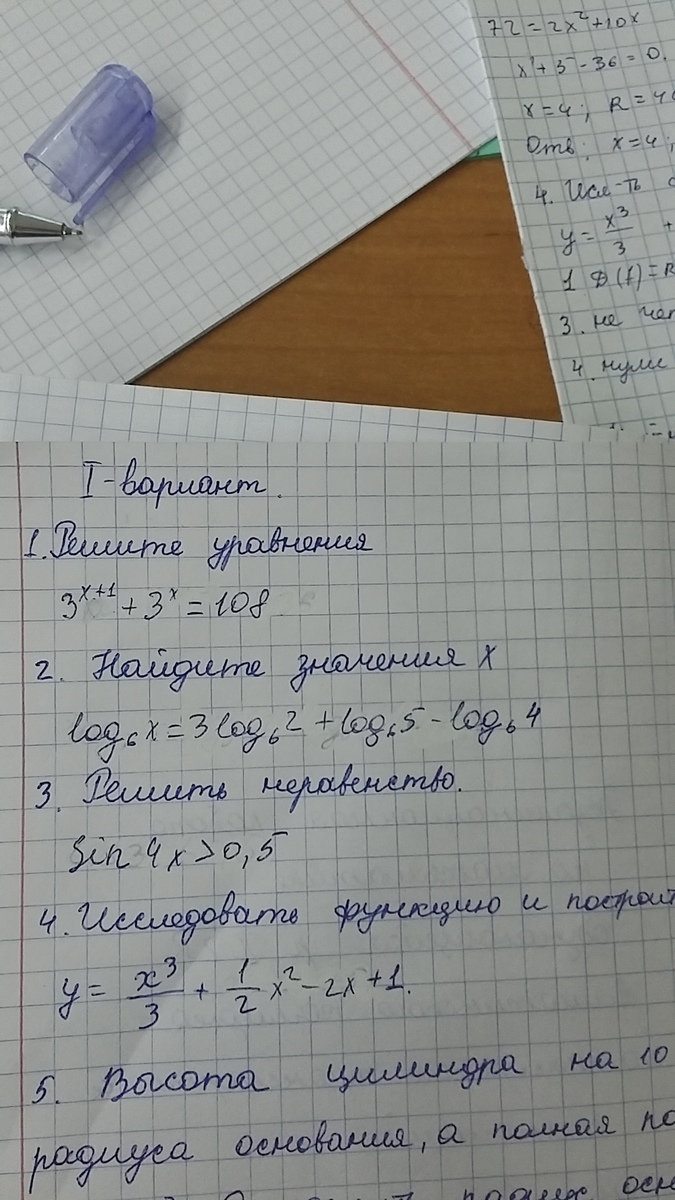 72=2x²+10x
x²+5-36=0.
x=4;
Отв: x=4;
4.
y=x³/3 +
1 D(f)=R
3. не чет
4. нули
I-вариант.
1. Решите уравнения
3^(x+1) + 3^x = 108
2. Найдите значения x
log₆x = 3log₆2 + log₆5 - log₆4
3. Решить неравенство.
Sin 4x > 0,5
4. Исследовать функцию и построит
y = x³/3 + 1/2 x² - 2x + 1.
5. Высота цилиндра на 10
радиуса основания, а полная по